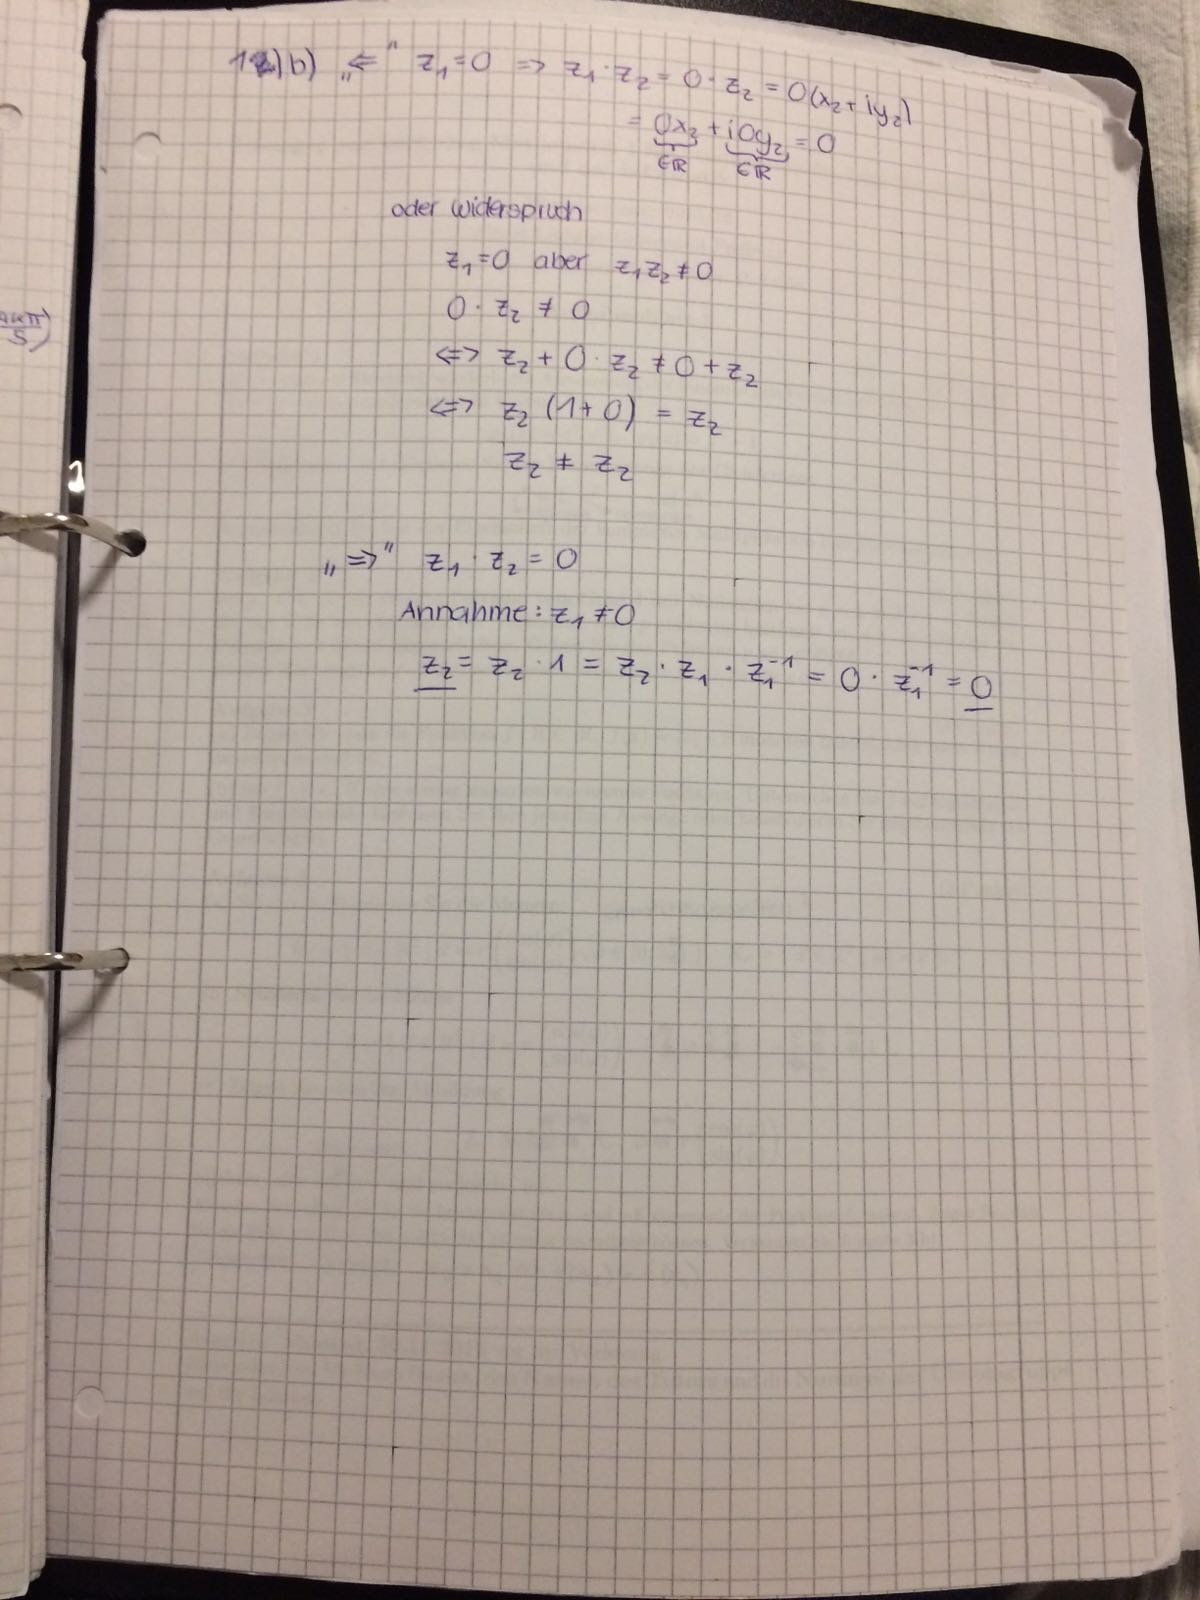 b) „⇐“ z₁=0 ⇒ z₁·z₂ = 0·z₂ = 0(x₂+iy₂)
= 0x₂ + i0y₂ = 0
∈ℝ ∈ℝ
oder widerspruch
z₁=0 aber z₁z₂≠0
0·z₂ ≠ 0
⇔ z₂ + 0·z₂ ≠ 0+z₂
⇔ z₂ (1+0) = z₂
z₂ ≠ z₂
„⇒“ z₁·z₂ = 0
Annahme: z₁≠0
z₂ = z₂·1 = z₂·z₁·z₁⁻¹ = 0·z₁⁻¹ = 0